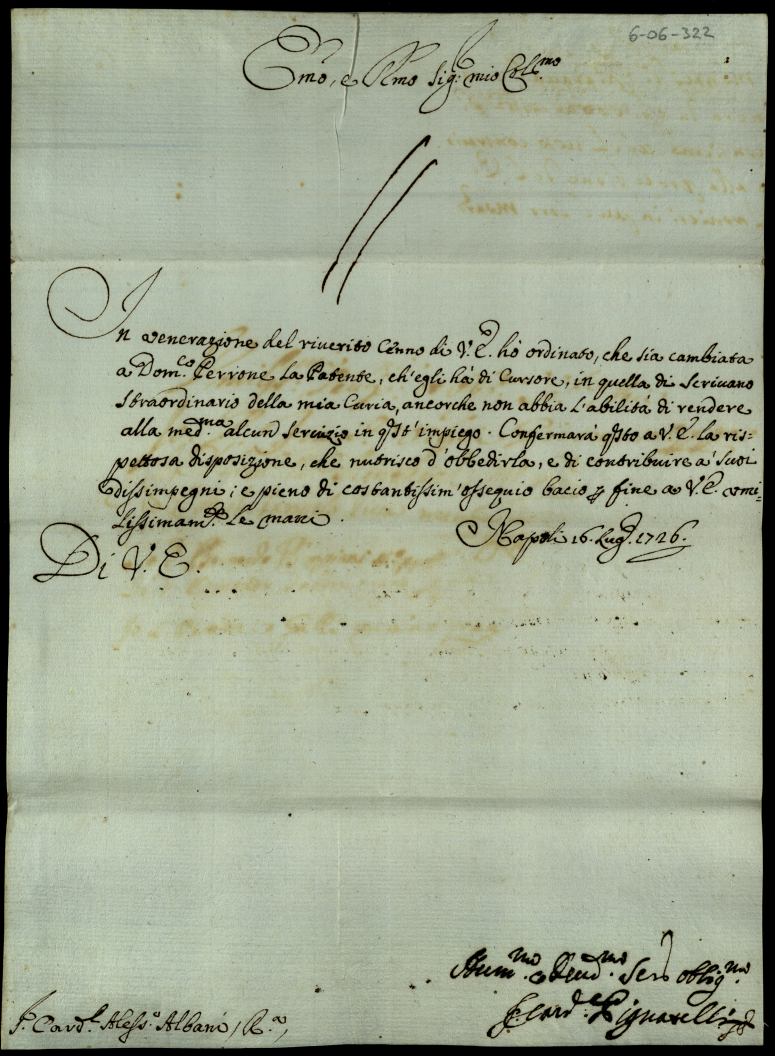 6-06-322
Emo, e Rmo Sig: mio Coll.mo
In venerazione del riverito Cenno di V. E. hò ordinato, che sia cambiata
a Dom.co Perrone la Patente, ch'egli há di Cursore, in quella di Scrivano
straordinario della mia Curia, ancorche non abbia l'abilitá di rendere
alla med.ma alcun servizio in qst'impiego. Confermará qsto a V. E. la ris-
pettosa disposizione, che nutrisco d'obbedirla, e di contribuire a' suoi
dissimpegni; e pieno di costantissim'ossequio bacio p fine a V. E. umi-
lissimam.te le mani.
Napoli 16. Lug.o 1726.
Di V. E.
Hum.mo e Deud.mo Ser. oblig.mo
F. Card.le Pignatelli
Sr. Card.l Aless.o Albani, Ra,